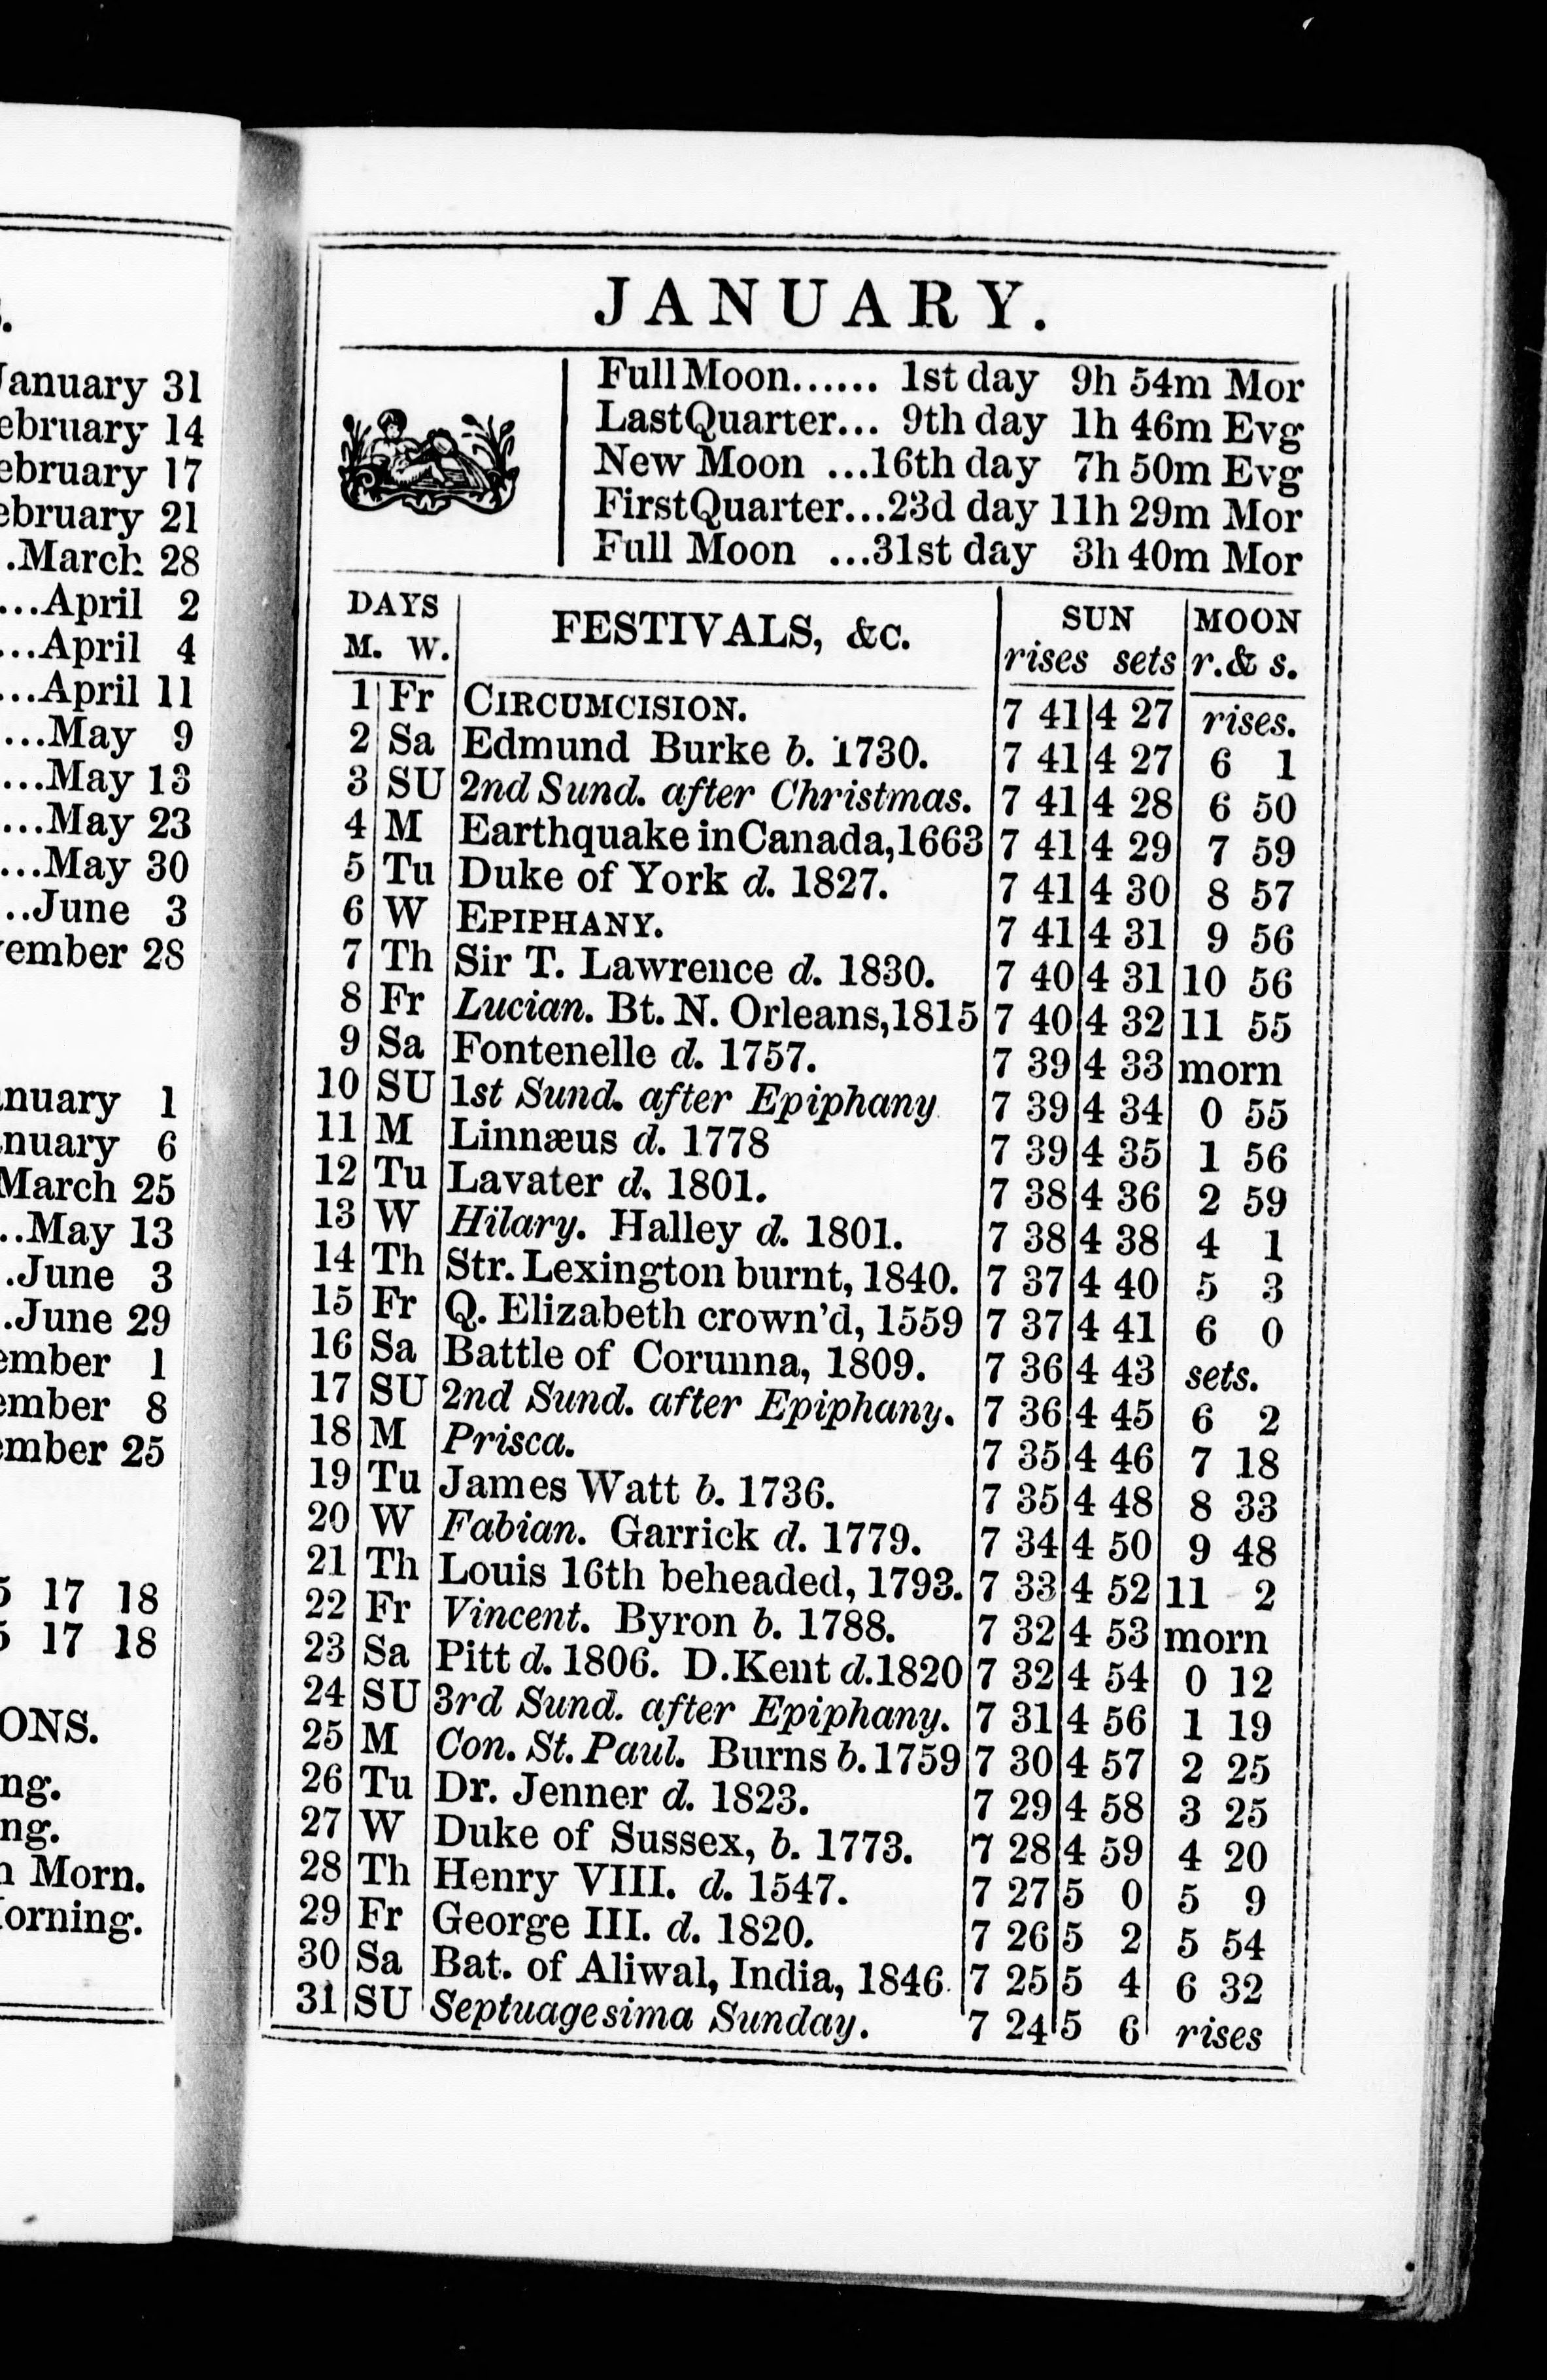 January 31
ebruary 14
ebruary 17
ebruary 21
..March 28
...April 2
...April 4
...April 11
...May 9
...May 13
...May 23
...May 30
..June 3
vember 28
nuary 1
nuary 6
March 25
..May 13
.June 3
.June 29
ember 1
ember 8
ember 25
5 17 18
5 17 18
ONS.
ng.
ng.
n Morn.
orning.
JANUARY.
Full Moon...... 1st day 9h 54m Mor
Last Quarter... 9th day 1h 46m Evg
New Moon ...16th day 7h 50m Evg
First Quarter...23d day 11h 29m Mor
Full Moon ...31st day 3h 40m Mor
DAYS FESTIVALS, &c. SUN MOON
M. W. rises sets r. & s.
1 Fr CIRCUMCISION. 7 41 4 27 rises.
2 Sa Edmund Burke b. 1730. 7 41 4 27 6 1
3 SU 2nd Sund. after Christmas. 7 41 4 28 6 50
4 M Earthquake in Canada, 1663 7 41 4 29 7 59
5 Tu Duke of York d. 1827. 7 41 4 30 8 57
6 W EPIPHANY. 7 41 4 31 9 56
7 Th Sir T. Lawrence d. 1830. 7 40 4 31 10 56
8 Fr Lucian. Bt. N. Orleans, 1815 7 40 4 32 11 55
9 Sa Fontenelle d. 1757. 7 39 4 33 morn
10 SU 1st Sund. after Epiphany 7 39 4 34 0 55
11 M Linnæus d. 1778 7 39 4 35 1 56
12 Tu Lavater d. 1801. 7 38 4 36 2 59
13 W Hilary. Halley d. 1801. 7 38 4 38 4 1
14 Th Str. Lexington burnt, 1840. 7 37 4 40 5 3
15 Fr Q. Elizabeth crown'd, 1559 7 37 4 41 6 0
16 Sa Battle of Corunna, 1809. 7 36 4 43 sets.
17 SU 2nd Sund. after Epiphany. 7 36 4 45 6 2
18 M Prisca. 7 35 4 46 7 18
19 Tu James Watt b. 1736. 7 35 4 48 8 33
20 W Fabian. Garrick d. 1779. 7 34 4 50 9 48
21 Th Louis 16th beheaded, 1793. 7 33 4 52 11 2
22 Fr Vincent. Byron b. 1788. 7 32 4 53 morn
23 Sa Pitt d. 1806. D. Kent d. 1820 7 32 4 54 0 12
24 SU 3rd Sund. after Epiphany. 7 31 4 56 1 19
25 M Con. St. Paul. Burns b. 1759 7 30 4 57 2 25
26 Tu Dr. Jenner d. 1823. 7 29 4 58 3 25
27 W Duke of Sussex, b. 1773. 7 28 4 59 4 20
28 Th Henry VIII. d. 1547. 7 27 5 0 5 9
29 Fr George III. d. 1820. 7 26 5 2 5 54
30 Sa Bat. of Aliwal, India, 1846. 7 25 5 4 6 32
31 SU Septuagesima Sunday. 7 24 5 6 rises